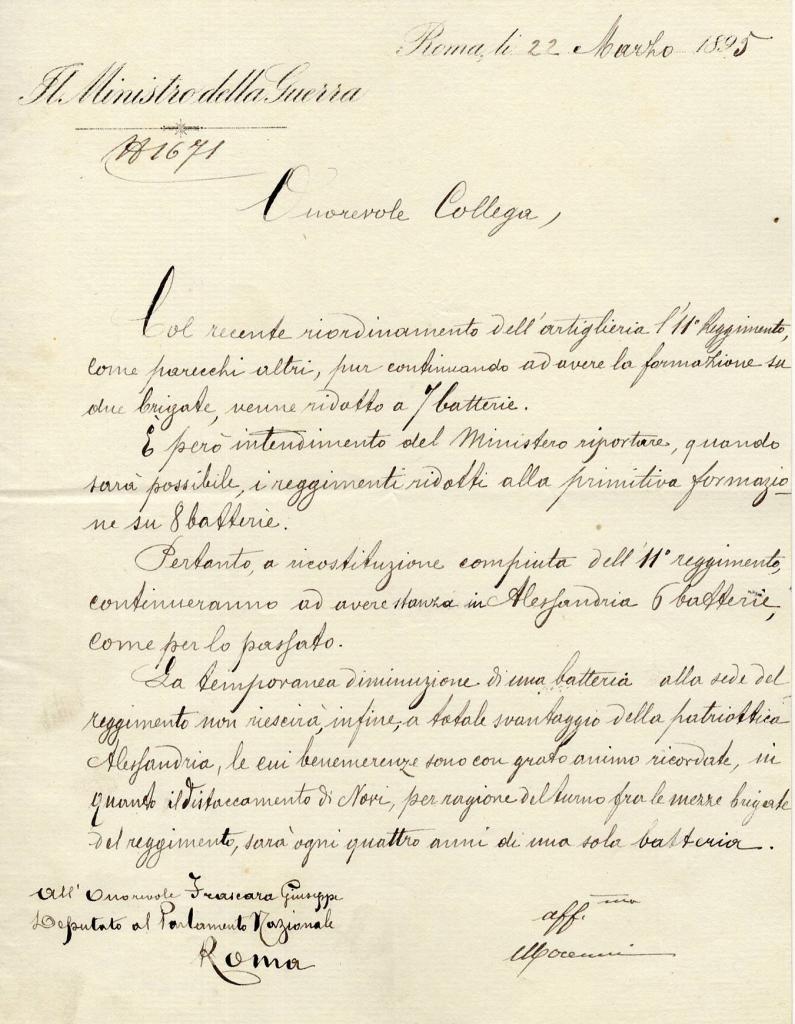 Roma, li 22 Marzo 1895
Il Ministro della Guerra
N 1671
Onorevole Collega,
Col recente riordinamento dell'artiglieria l'11° Reggimento,
come parecchi altri, pur continuando ad avere la formazione su
due brigate, venne ridotto a 7 batterie.
È però intendimento del Ministero riportare, quando
sarà possibile, i reggimenti ridotti alla primitiva formazio-
ne su 8 batterie.
Pertanto, a ricostituzione compiuta dell'11° reggimento,
continueranno ad avere stanza in Alessandria 6 batterie,
come per lo passato.
La temporanea diminuzione di una batteria alla sede del
reggimento non riescirà, infine, a totale svantaggio della patriottica
Alessandria, le cui benemerenze sono con grato animo ricordate, in
quanto il distaccamento di Novi, per ragione del turno fra le mezze brigate
del reggimento, sarà ogni quattro anni di una sola batteria.
All'Onorevole Frascara Giuseppe
Deputato al Parlamento Nazionale
Roma
aff.mo
Mocenni